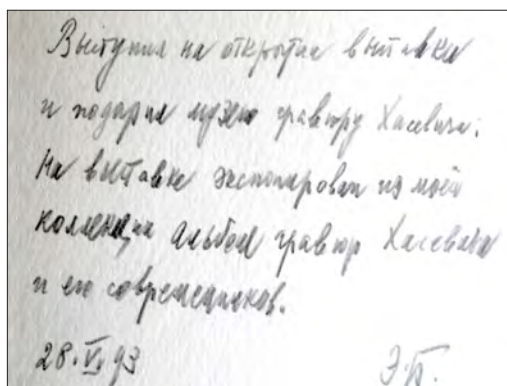 Выступил на открытии выставки
и подарил музею гравюру Хасевича.
На выставке экспонирован из моей
коллекции альбом гравюр Хасевича
и его современников.
28.VI.93 Э.Б.